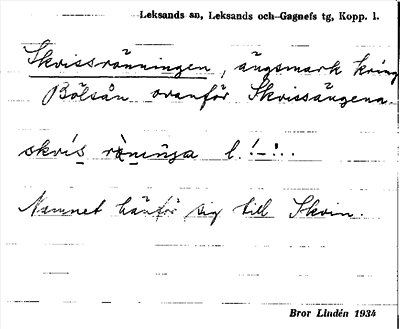 Leksands sn, Leksands och Gagnefs tg, Kopp. l.
Skvissrönningen, ängsmark kring
Bölsån ovanför Skvissängena.
skvis l.
Namnet hänför sig till Skvin.
Bror Lindén 1934